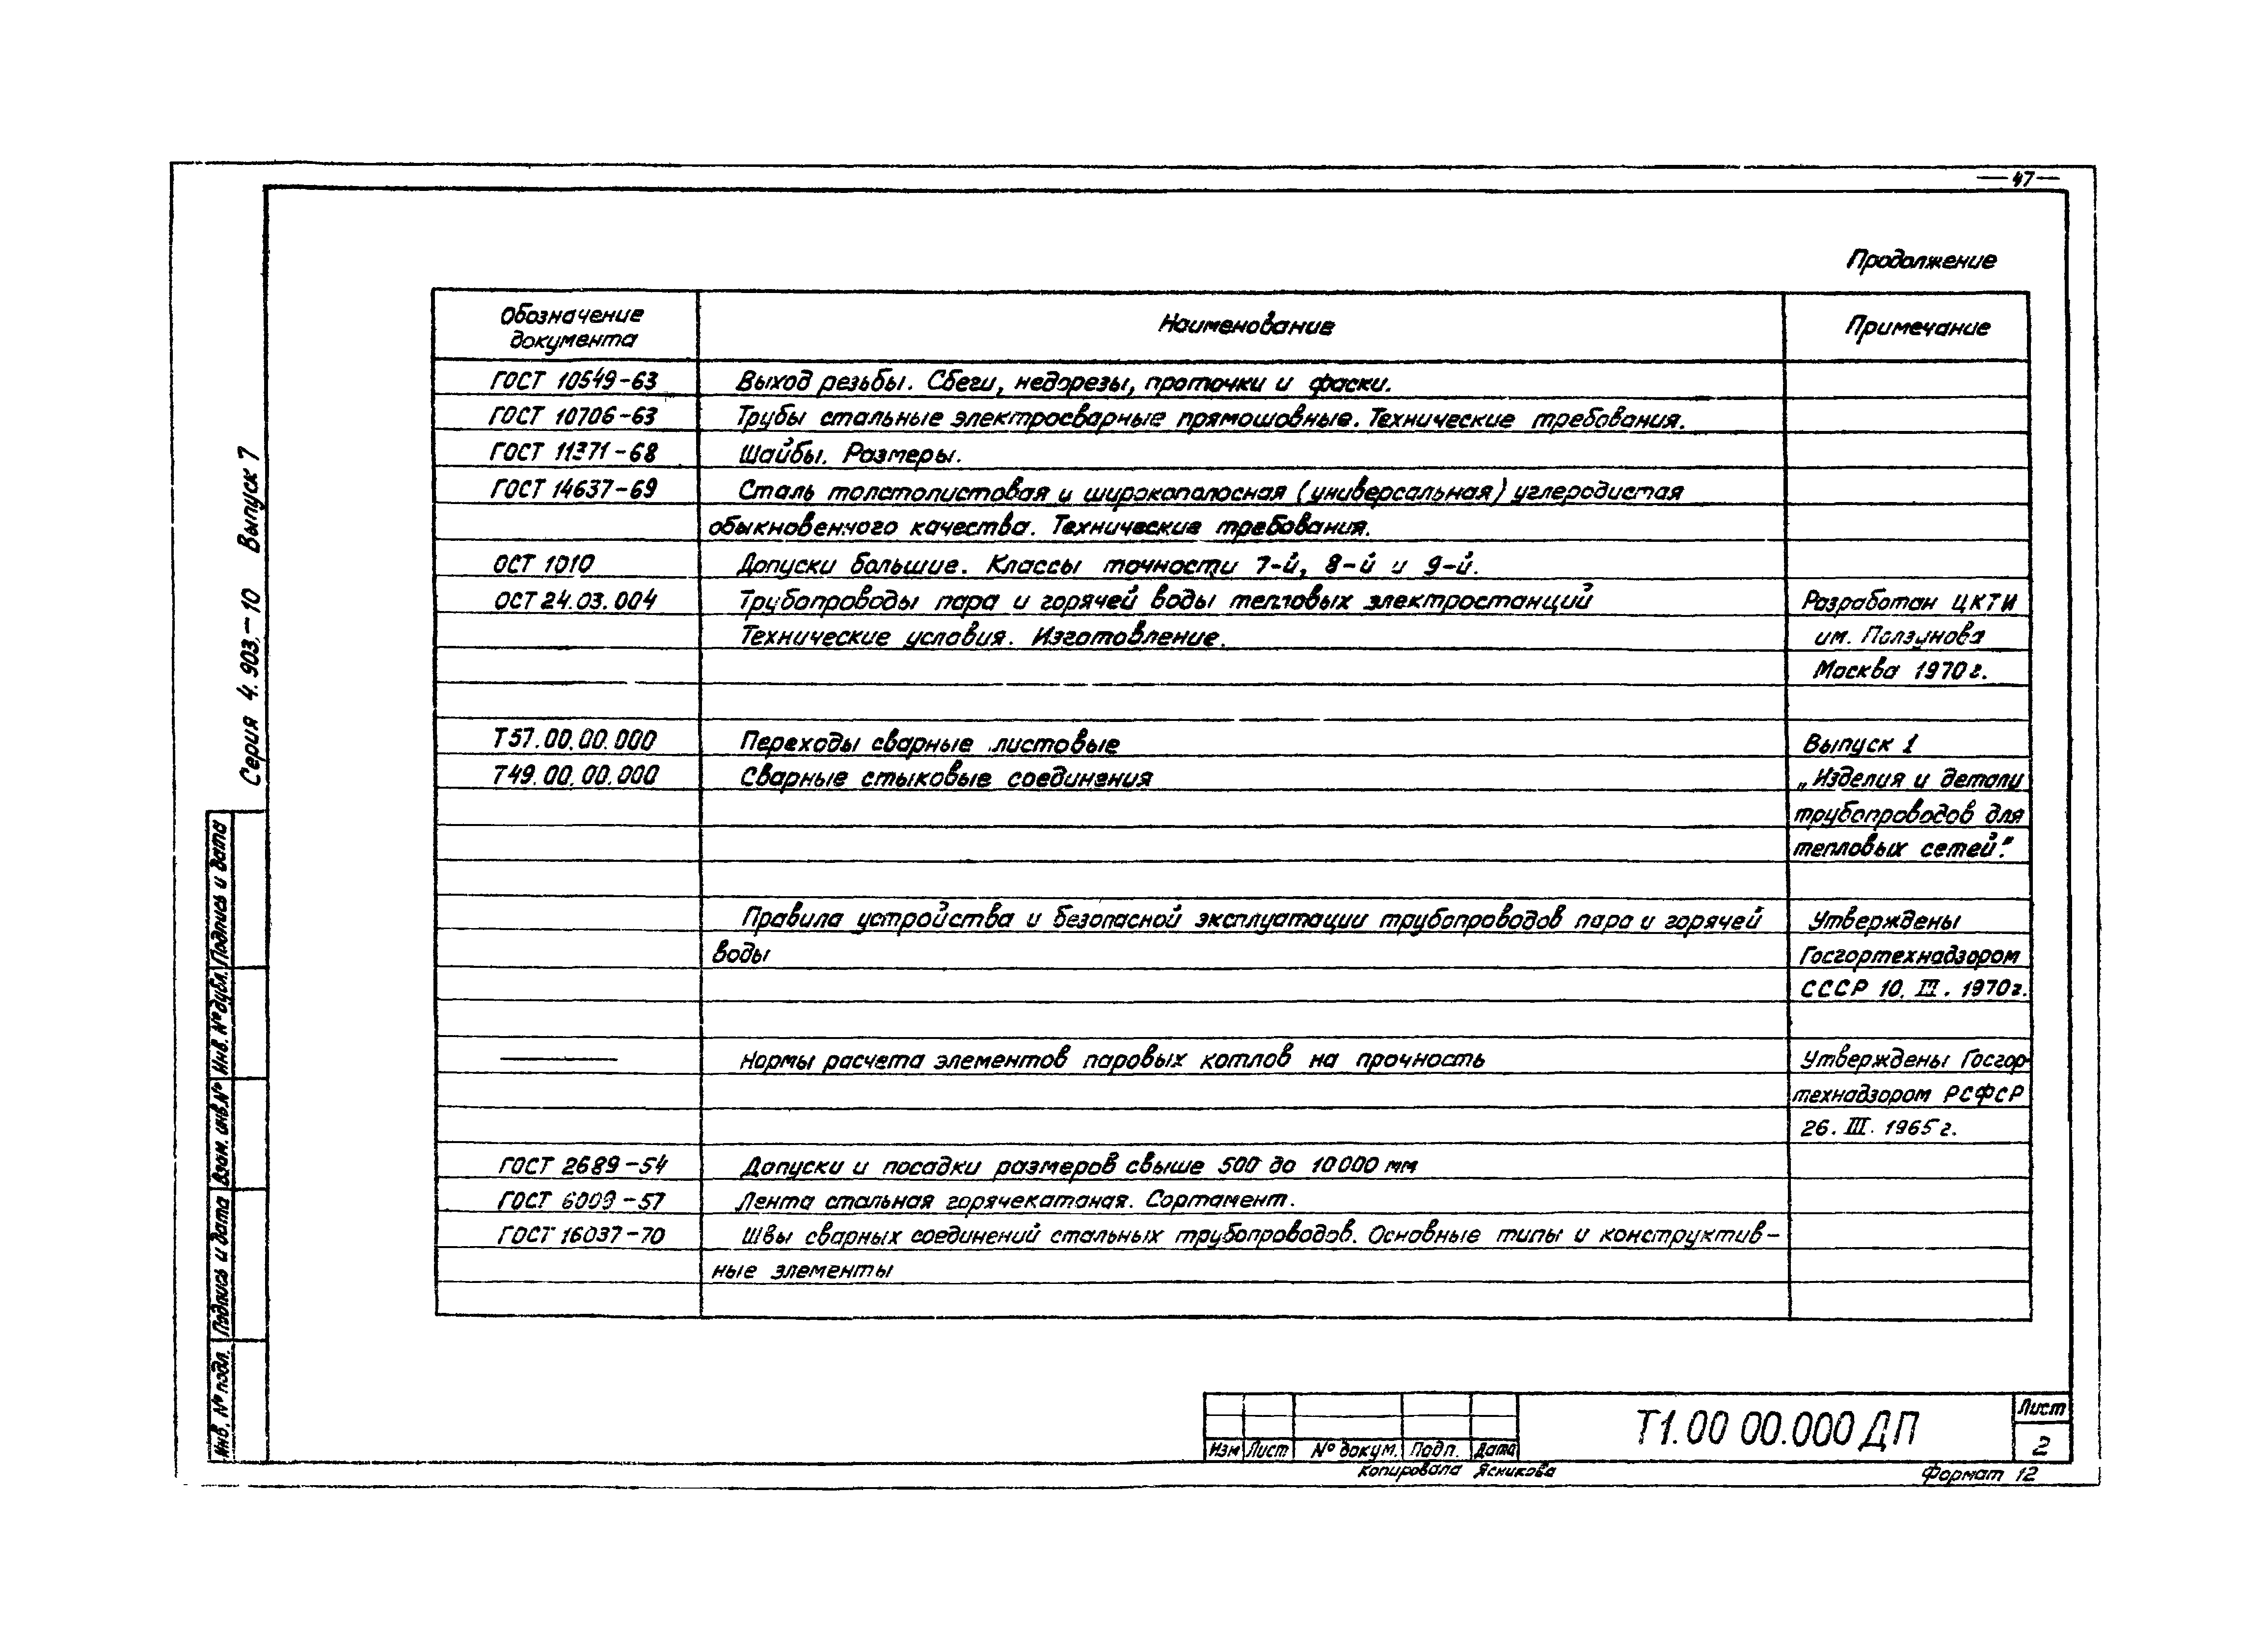 — 47 —
Продолжение
Обозначение документа Наименование Примечание
ГОСТ 10549-63 Выход резьбы. Сбеги, недорезы, проточки и фаски.
ГОСТ 10706-63 Трубы стальные электросварные прямошовные. Технические требования.
ГОСТ 11371-68 Шайбы. Размеры.
ГОСТ 14637-69 Сталь толстолистовая и широкополосная (универсальная) углеродистая
обыкновенного качества. Технические требования.
ОСТ 1010 Допуски большие. Классы точности 7-й, 8-й и 9-й.
ОСТ 24.03.004 Трубопроводы пара и горячей воды тепловых электростанций Разработан ЦКТИ
Технические условия. Изготовление. им. Ползунова
Москва 1970г.
Т57.00.00.000 Переходы сварные листовые Выпуск 1
Т49.00.00.000 Сварные стыковые соединения „Изделия и детали
трубопроводов для
тепловых сетей."
Правила устройства и безопасной эксплуатации трубопроводов пара и горячей Утверждены
воды Госгортехнадзором
СССР 10. III. 1970г.
——— Нормы расчета элементов паровых котлов на прочность Утверждены Госгор-
технадзором РСФСР
26. III. 1965г.
ГОСТ 2689-54 Допуски и посадки размеров свыше 500 до 10000 мм
ГОСТ 6009-57 Лента стальная горячекатаная. Сортамент.
ГОСТ 16037-70 Швы сварных соединений стальных трубопроводов. Основные типы и конструктив-
ные элементы
Серия 4.903.-10 Выпуск 7
Инв. № подл. Подпись и дата Взам. инв.№ Инв. № дубл. Подпись и дата
Изм Лист № докум. Подп. Дата
Т1.00 00.000 ДП
Лист
2
Копировала Ясникова
Формат 12